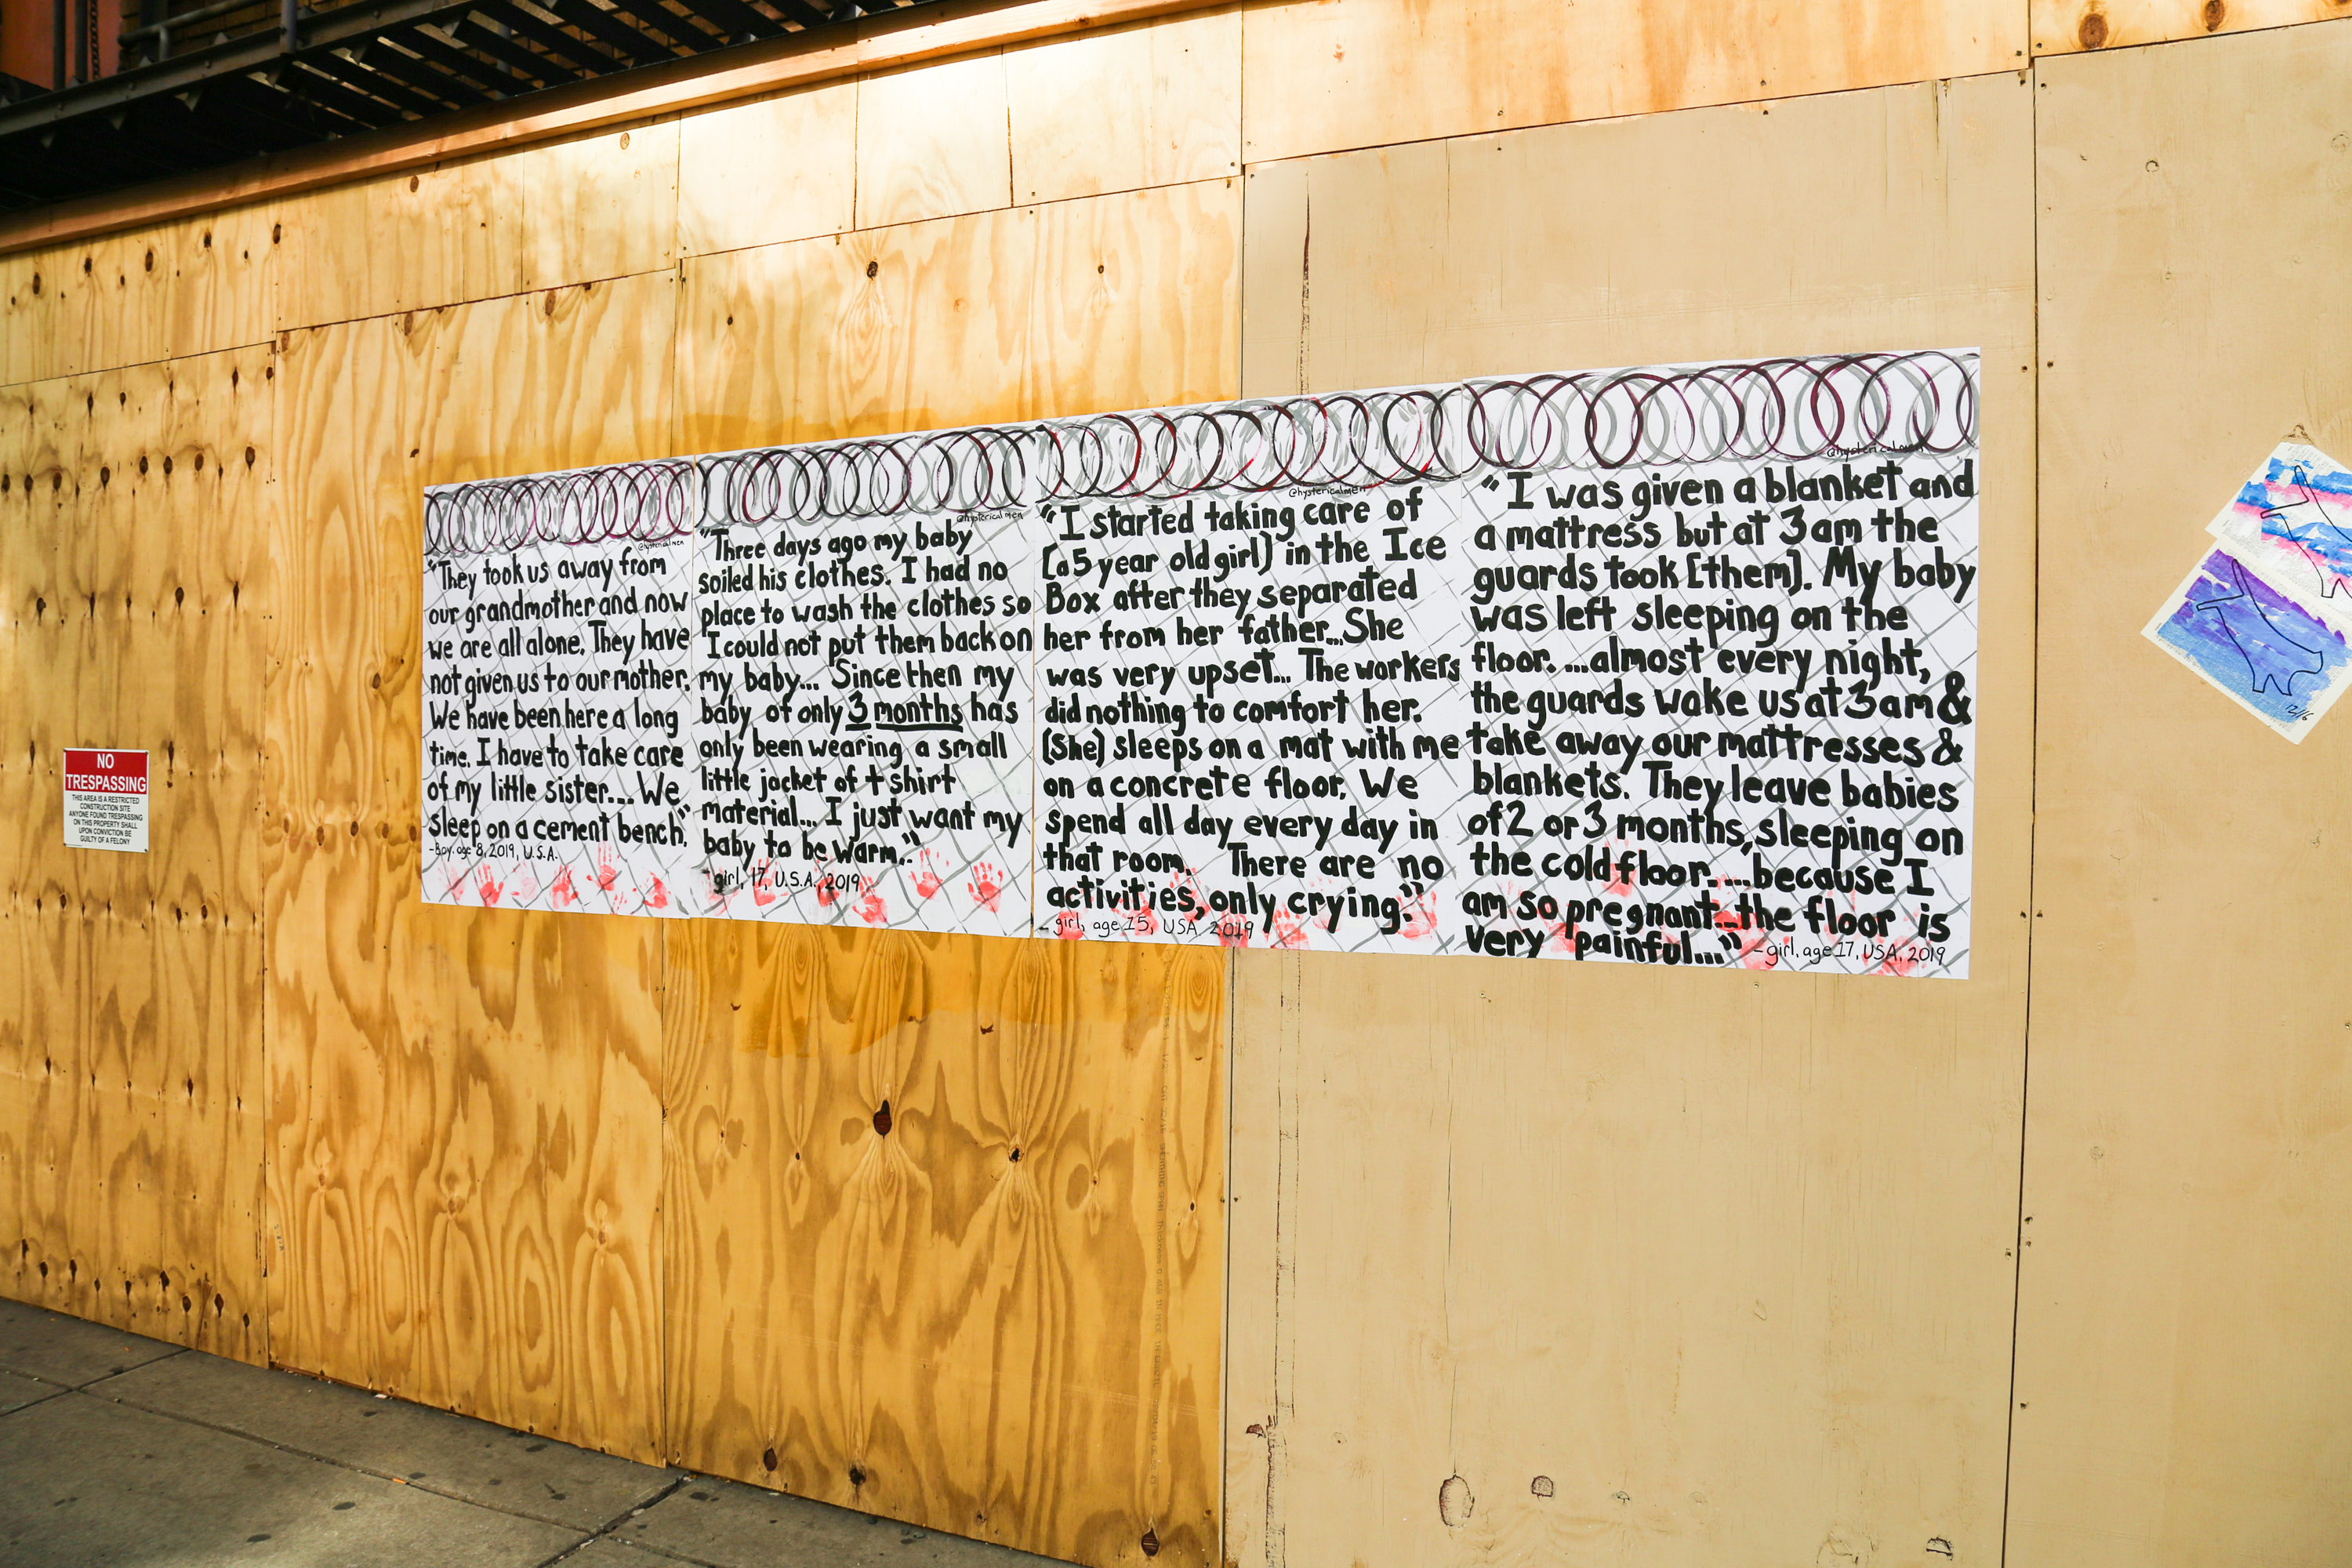 NO
TRESPASSING
THIS AREA IS A RESTRICTED
CONSTRUCTION SITE
ANYONE FOUND TRESPASSING
ON THIS PROPERTY SHALL
UPON CONVICTION BE
GUILTY OF A FELONY
@hystericalmen
"They took us away from
our grandmother and now
we are all alone. They have
not given us to our mother.
We have been here a long
time. I have to take care
of my little sister... We
sleep on a cement bench."
-Boy. age 8, 2019, U.S.A.
@hystericalmen
"Three days ago my baby
soiled his clothes. I had no
place to wash the clothes so
I could not put them back on
my baby... Since then my
baby of only 3 months has
only been wearing a small
little jacket of t shirt
material... I just want my
baby to be warm."
- girl, 17, U.S.A., 2019
@hystericalmen
"I started taking care of
(a 5 year old girl) in the Ice
Box after they separated
her from her father... She
was very upset... The workers
did nothing to comfort her.
(She) sleeps on a mat with me
on a concrete floor. We
spend all day every day in
that room. There are no
activities, only crying."
- girl, age 15, USA 2019
@hystericalmen
"I was given a blanket and
a mattress but at 3am the
guards took [them]. My baby
was left sleeping on the
floor. ...almost every night,
the guards wake us at 3am &
take away our mattresses &
blankets. They leave babies
of 2 or 3 months, sleeping on
the cold floor. ...because I
am so pregnant...the floor is
very painful..."
- girl, age 17, USA, 2019
12/16